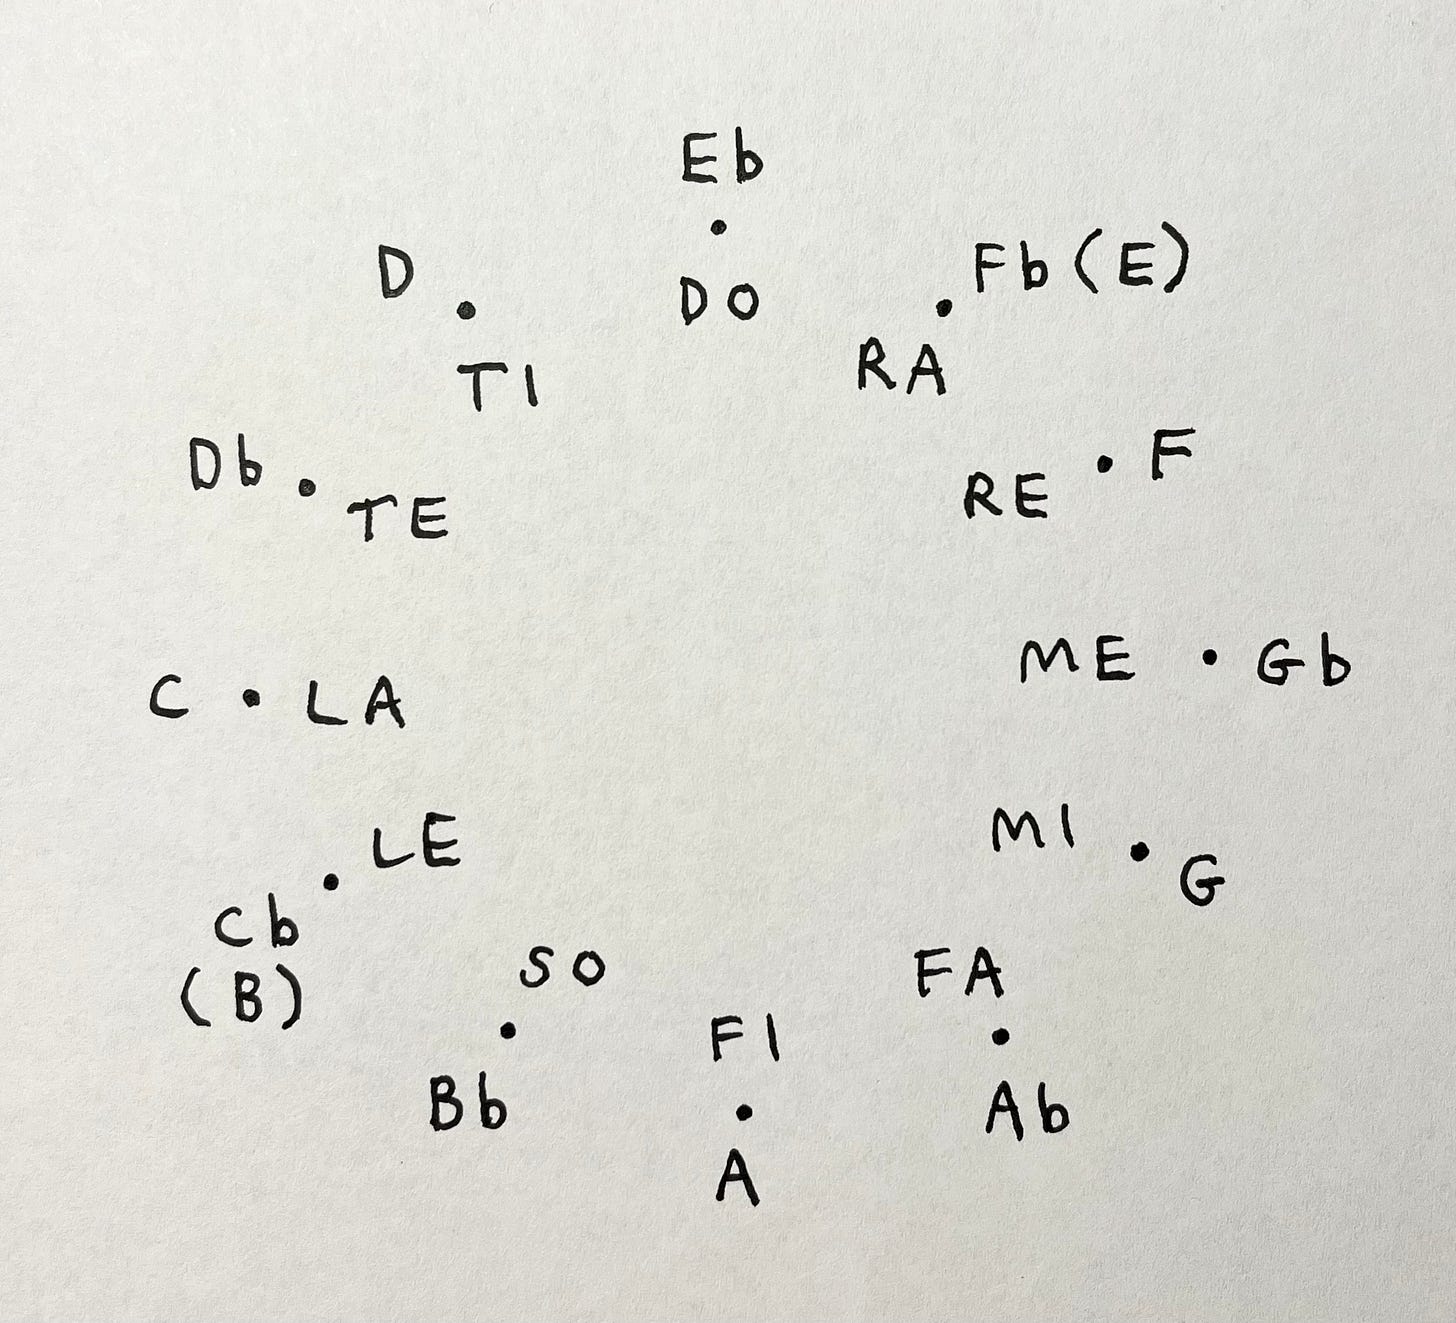 Eb
DO
Fb (E)
RA
F
RE
Gb
ME
G
MI
Ab
FA
A
FI
Bb
SO
Cb
(B)
LE
C
LA
Db
TE
D
TI